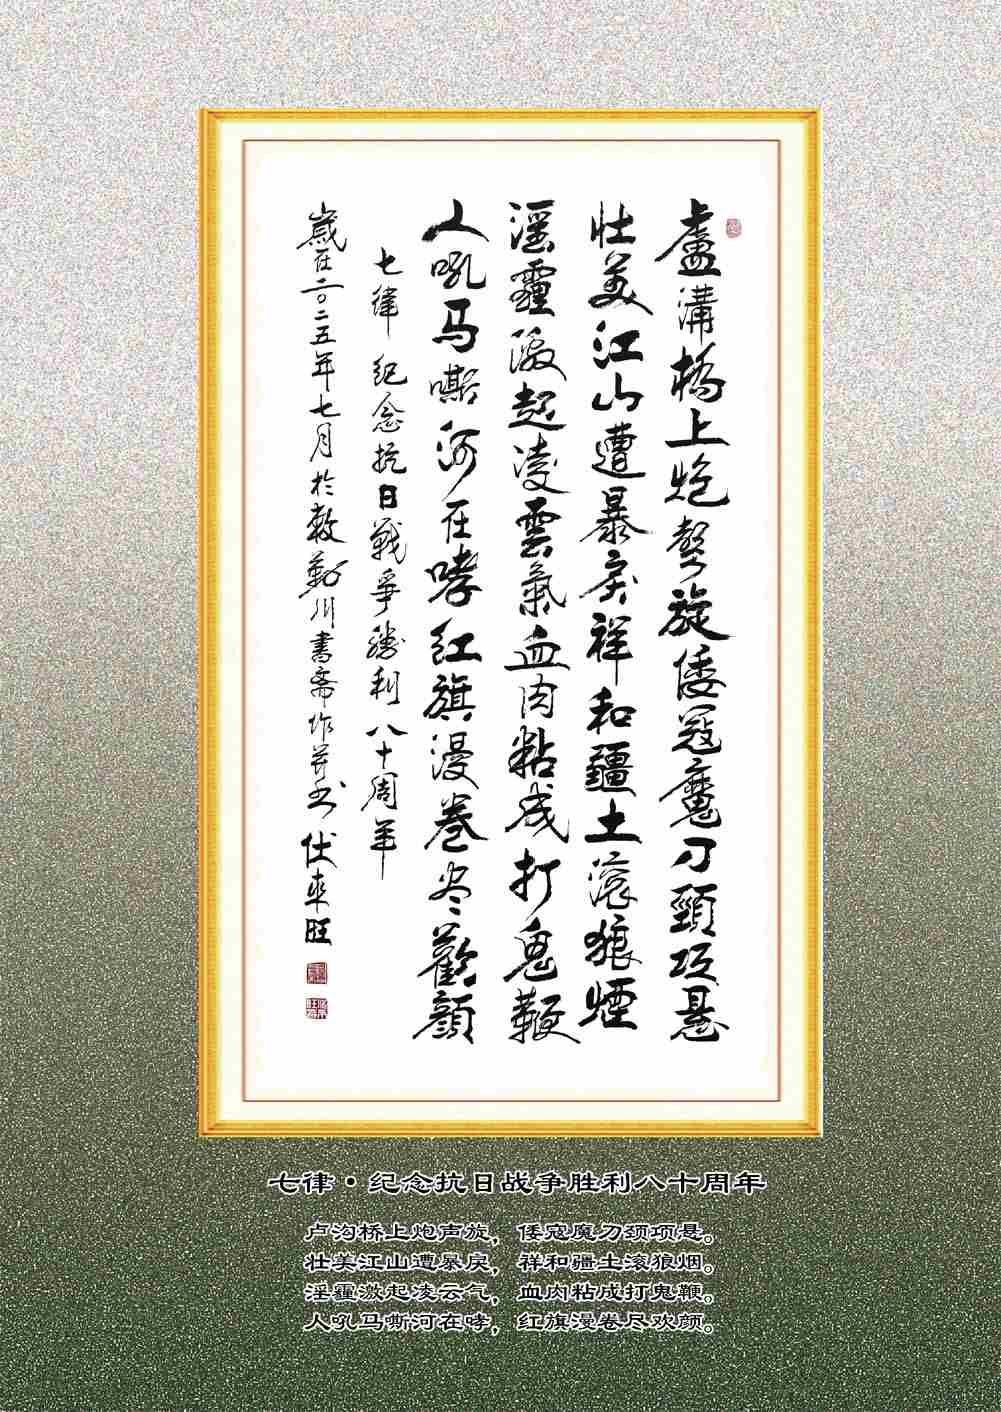 盧溝橋上炮聲旋倭寇魔刀頸項悬
壮美江山遭暴戾祥和疆土滚狼煙
淫霾激起凌雲氣血肉粘成打鬼鞭
人吼马嘶河在哮红旗漫卷尽歡顔
七律 纪念抗日戰爭勝利八十周年
歲在二〇二五年七月於敕勒川書斋作并书 伏来旺
七律·纪念抗日战争胜利八十周年
卢沟桥上炮声旋，倭寇魔刀颈项悬。
壮美江山遭暴戾，祥和疆土滚狼烟。
淫霾激起凌云气，血肉粘成打鬼鞭。
人吼马嘶河在哮，红旗漫卷尽欢颜。